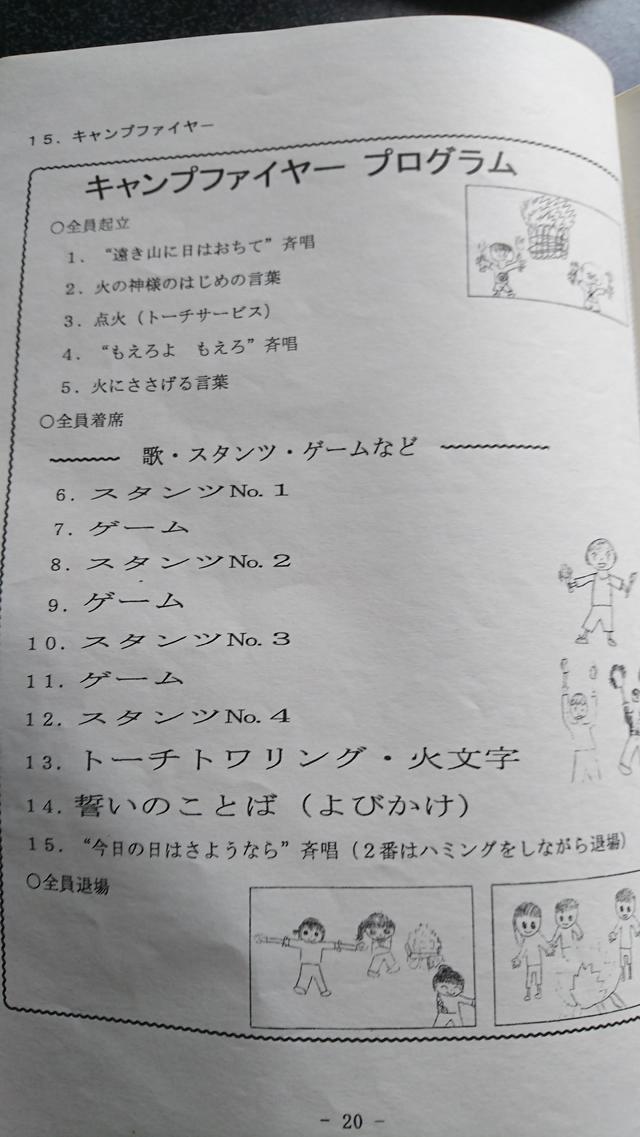 15．キャンプファイヤー
キャンプファイヤー プログラム
○全員起立
1．“遠き山に日はおちて”斉唱
2．火の神様のはじめの言葉
3．点火（トーチサービス）
4．“もえろよ　もえろ”斉唱
5．火にささげる言葉
○全員着席
歌・スタンツ・ゲームなど
6．スタンツNo.1
7．ゲーム
8．スタンツNo.2
9．ゲーム
10．スタンツNo.3
11．ゲーム
12．スタンツNo.4
13．トーチトワリング・火文字
14．誓いのことば（よびかけ）
15．“今日の日はさようなら”斉唱（2番はハミングをしながら退場）
○全員退場
- 20 -